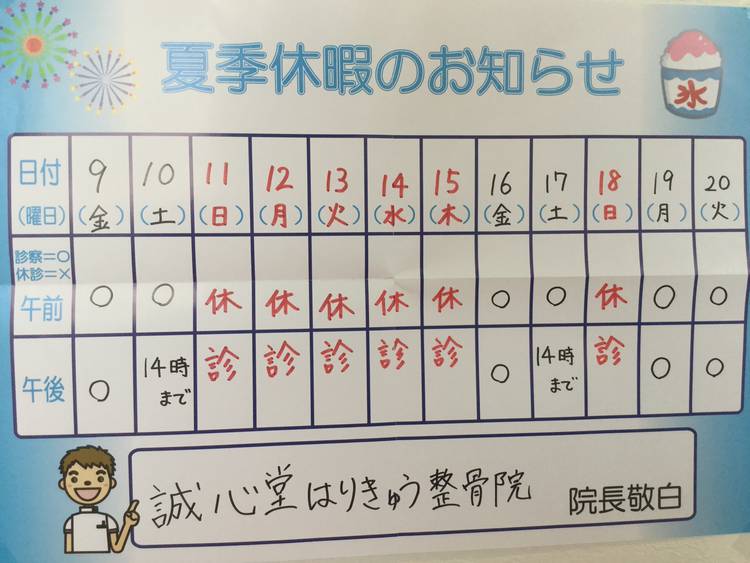 夏季休暇のお知らせ
氷
日付 9 10 11 12 13 14 15 16 17 18 19 20
(曜日) (金) (土) (日) (月) (火) (水) (木) (金) (土) (日) (月) (火)
診察=○
休診=×
午前 ○ ○ 休 休 休 休 休 ○ ○ 休 ○ ○
午後 ○ 14時まで 診 診 診 診 診 ○ 14時まで 診 ○ ○
誠心堂はりきゅう整骨院 院長敬白